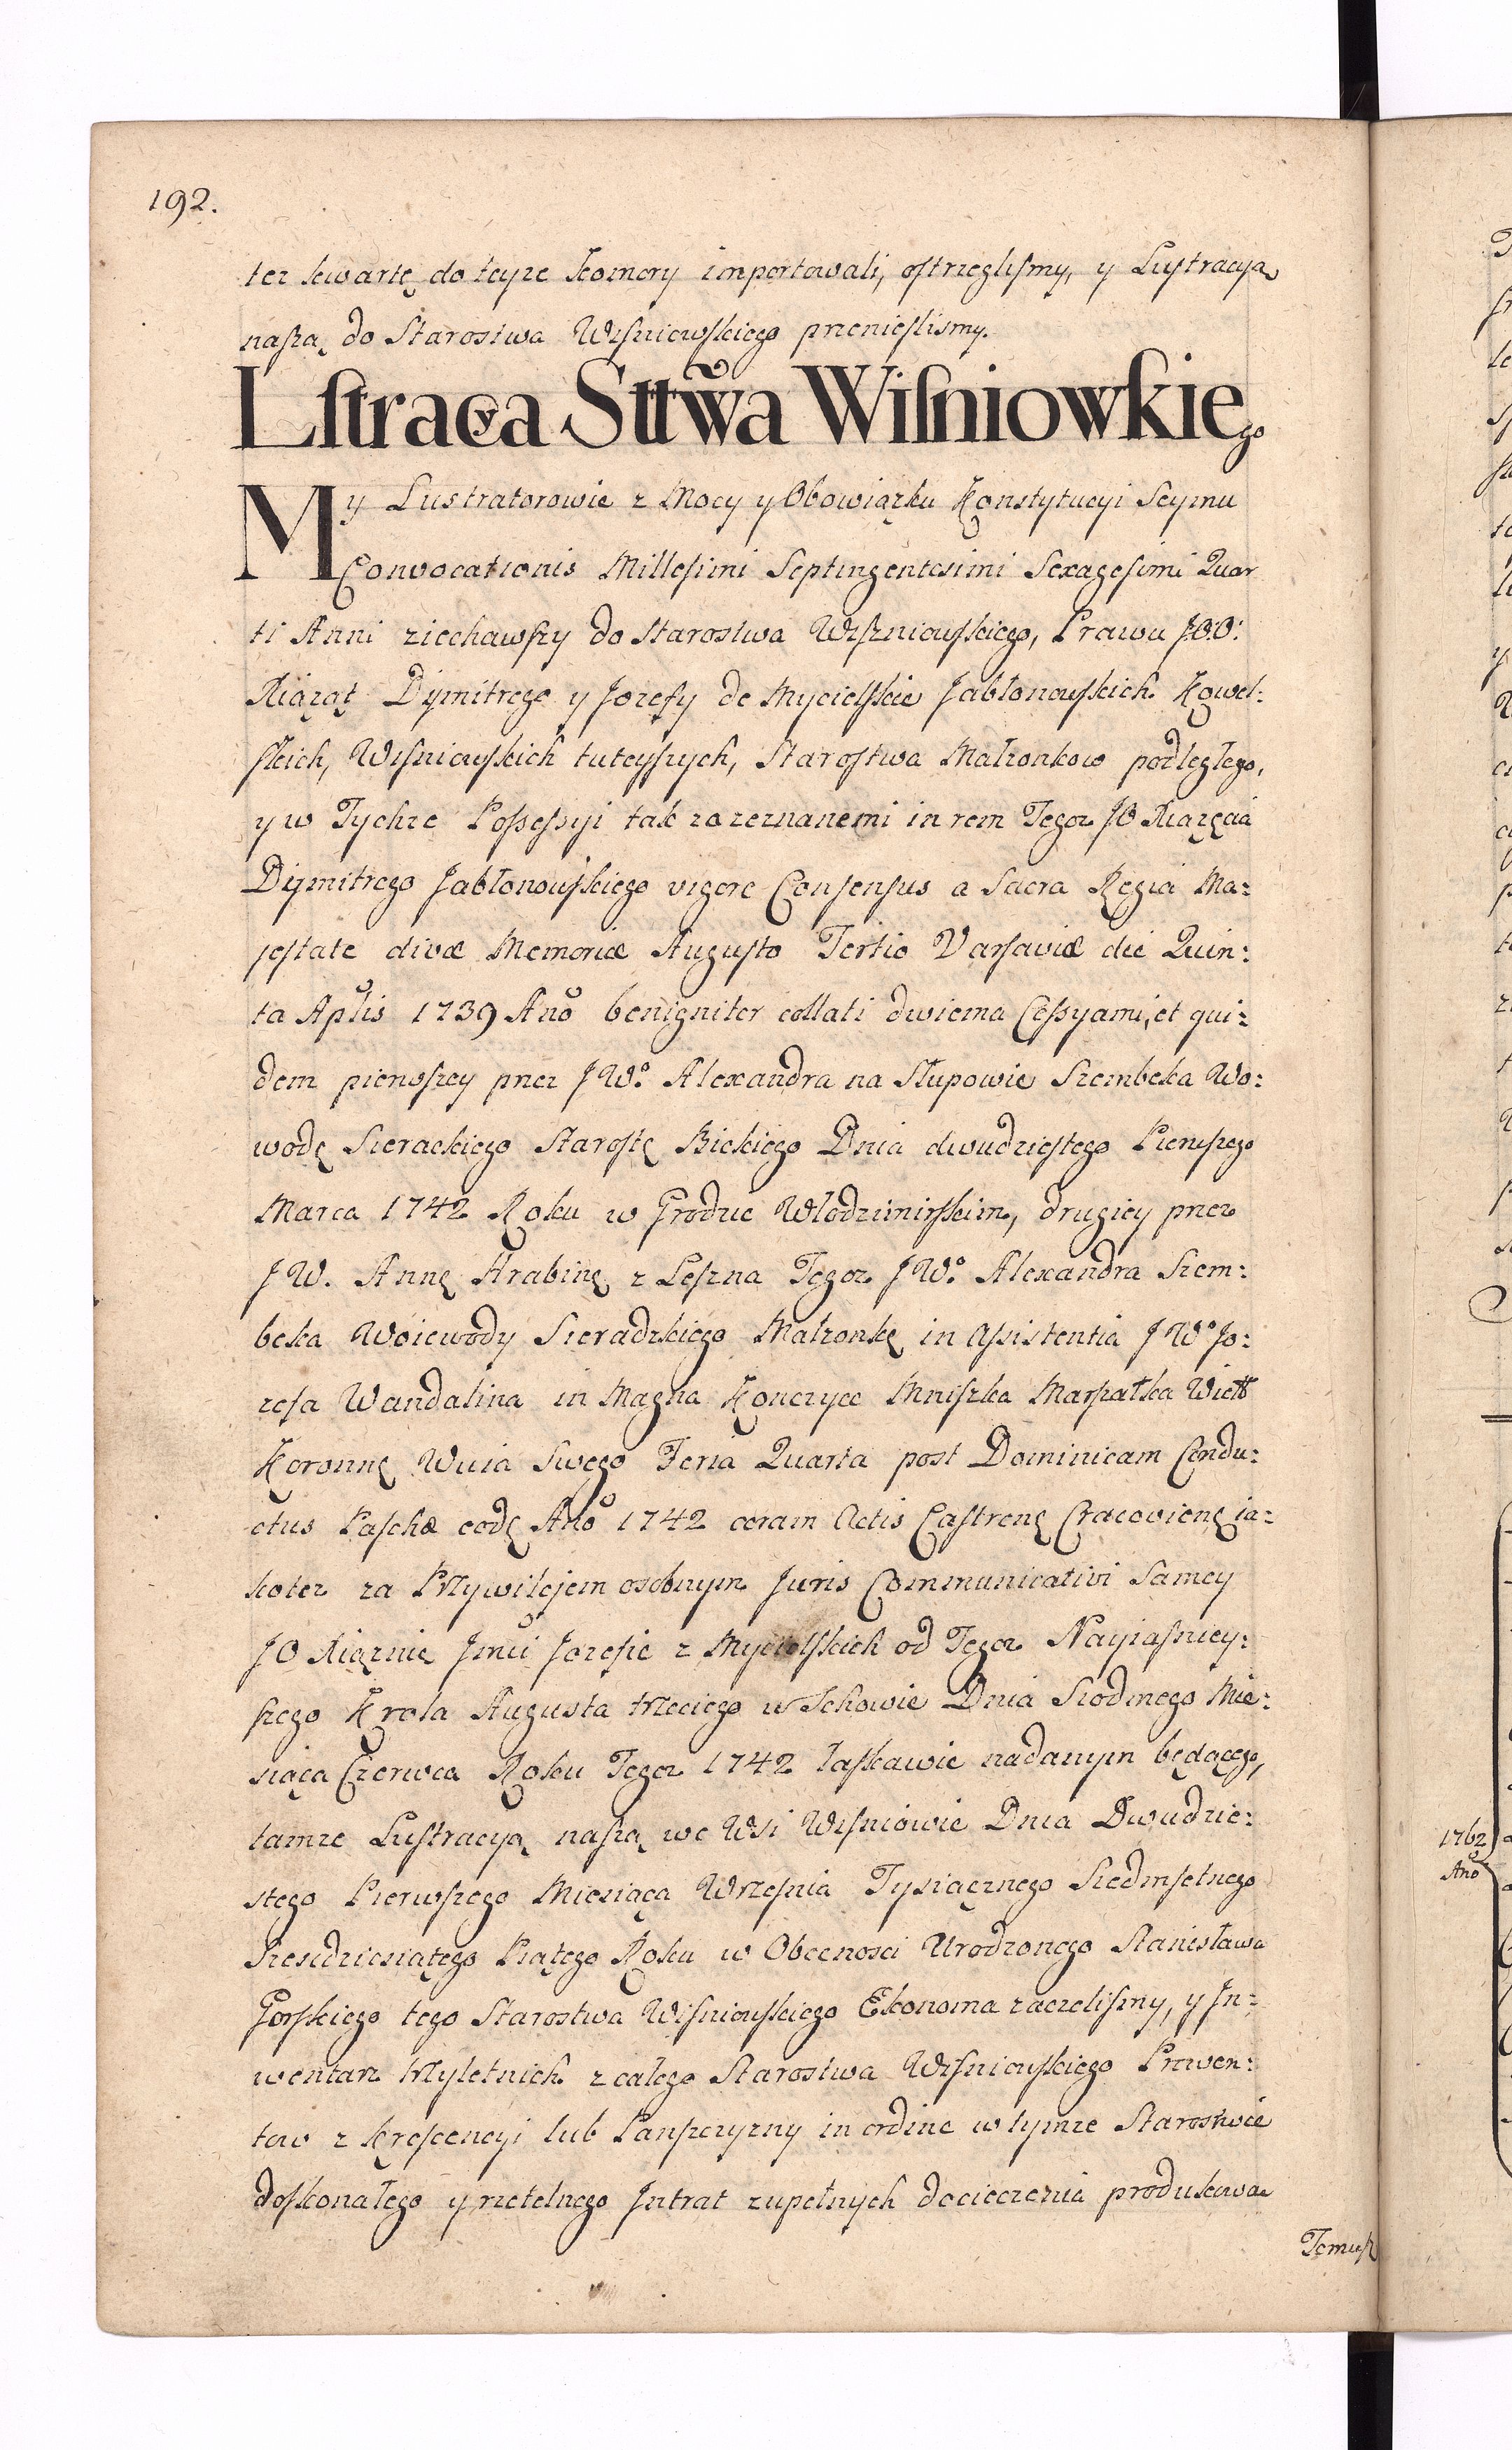 192.
tez kwartę do teyze Komory importowali, ostrzeglismy, y Lustracyą
naszą do Starostwa Wiśniowskiego przenieslismy.
Lstracya Sttwa Wiśniowkiego
My Lustratorowie z Mocy y Obowiązku Konstytucyi Seymu
Convocationis Millesimi Septingentesimi Sexagesimi Quar
ti Anni ziechawszy do Starostwa Wiszniowskiego, Prawu JOO:
Xiąząt Dymitrego y Jozefy de Mycielskie Jabłonowskich Kowel:
skich, Wiśniowskich tuteyszych, Starostwa Małzonkow podległego,
y w Tychze Possessyi tak zezeznanemi in rem Tegoz JO Xiązęcia
Dymitrego Jabłonowskiego vigore Consensus a Sacra Regia Ma:
jestate divæ Memoriæ Augusto Tertio Varsaviæ die Quin:
ta Aplis 1739 Ano benigniter collati dwiema Cessyami, et qui:
dem pierwszey przez JWo Alexandra na Słupowie Szembeka Wo:
wodę Sierackiego Starostę Bickiego Dnia dwudziestego Pierwszego
Marca 1742 Roku w Grodzie Włodzimirskim, drugiey przez
JW. Annę Hrabinę z Leszna Tegoz JWo Alexandra Szem:
beka Woiewody Sieradzkiego Małzonkę in assistentia JWo Jo:
zefa Wandalina in Magna Konczyce Mniszka Marszałka Wielk
Koronnę Wuia Swego Feria Quarta post Dominicam Condu:
ctus Paschæ eodę Ano 1742 coram Actis Castrenę Cracovienę ia:
kotez za Przywilejem osobnym Juris Communicativi Samey
JO Xięznie Jmci Jozefie z Mycielskich od Tegoz Nayiasniey:
szego Krola Augusta trzeciego w Schowie Dnia Siodmego Mie:
siąca Czerwca Roku Tegoz 1742 łaskawie nadanym będącego,
tamze Lustracyą naszą we Wsi Wiśniowie Dnia Dwudzie:
stego Pierwszego Miesiąca Września Tysiącznego Siedmsetnego
Szescdziesiątego Piątego Roku w Obecnosci Urodzonego Stanisława
Gorskiego tego Starostwa Wiśniowskiego Ekonoma zaczelismy, y In:
wentarz trzyletnich z całego Starostwa Wiśniowskiego Prowen:
tow z Krescencyi lub Panszczyzny in ordine w tymze Starostwie
doskonałego y rzetelnego Intrat zupełnych docieczenia produkowa
Temusz
1762
Ano